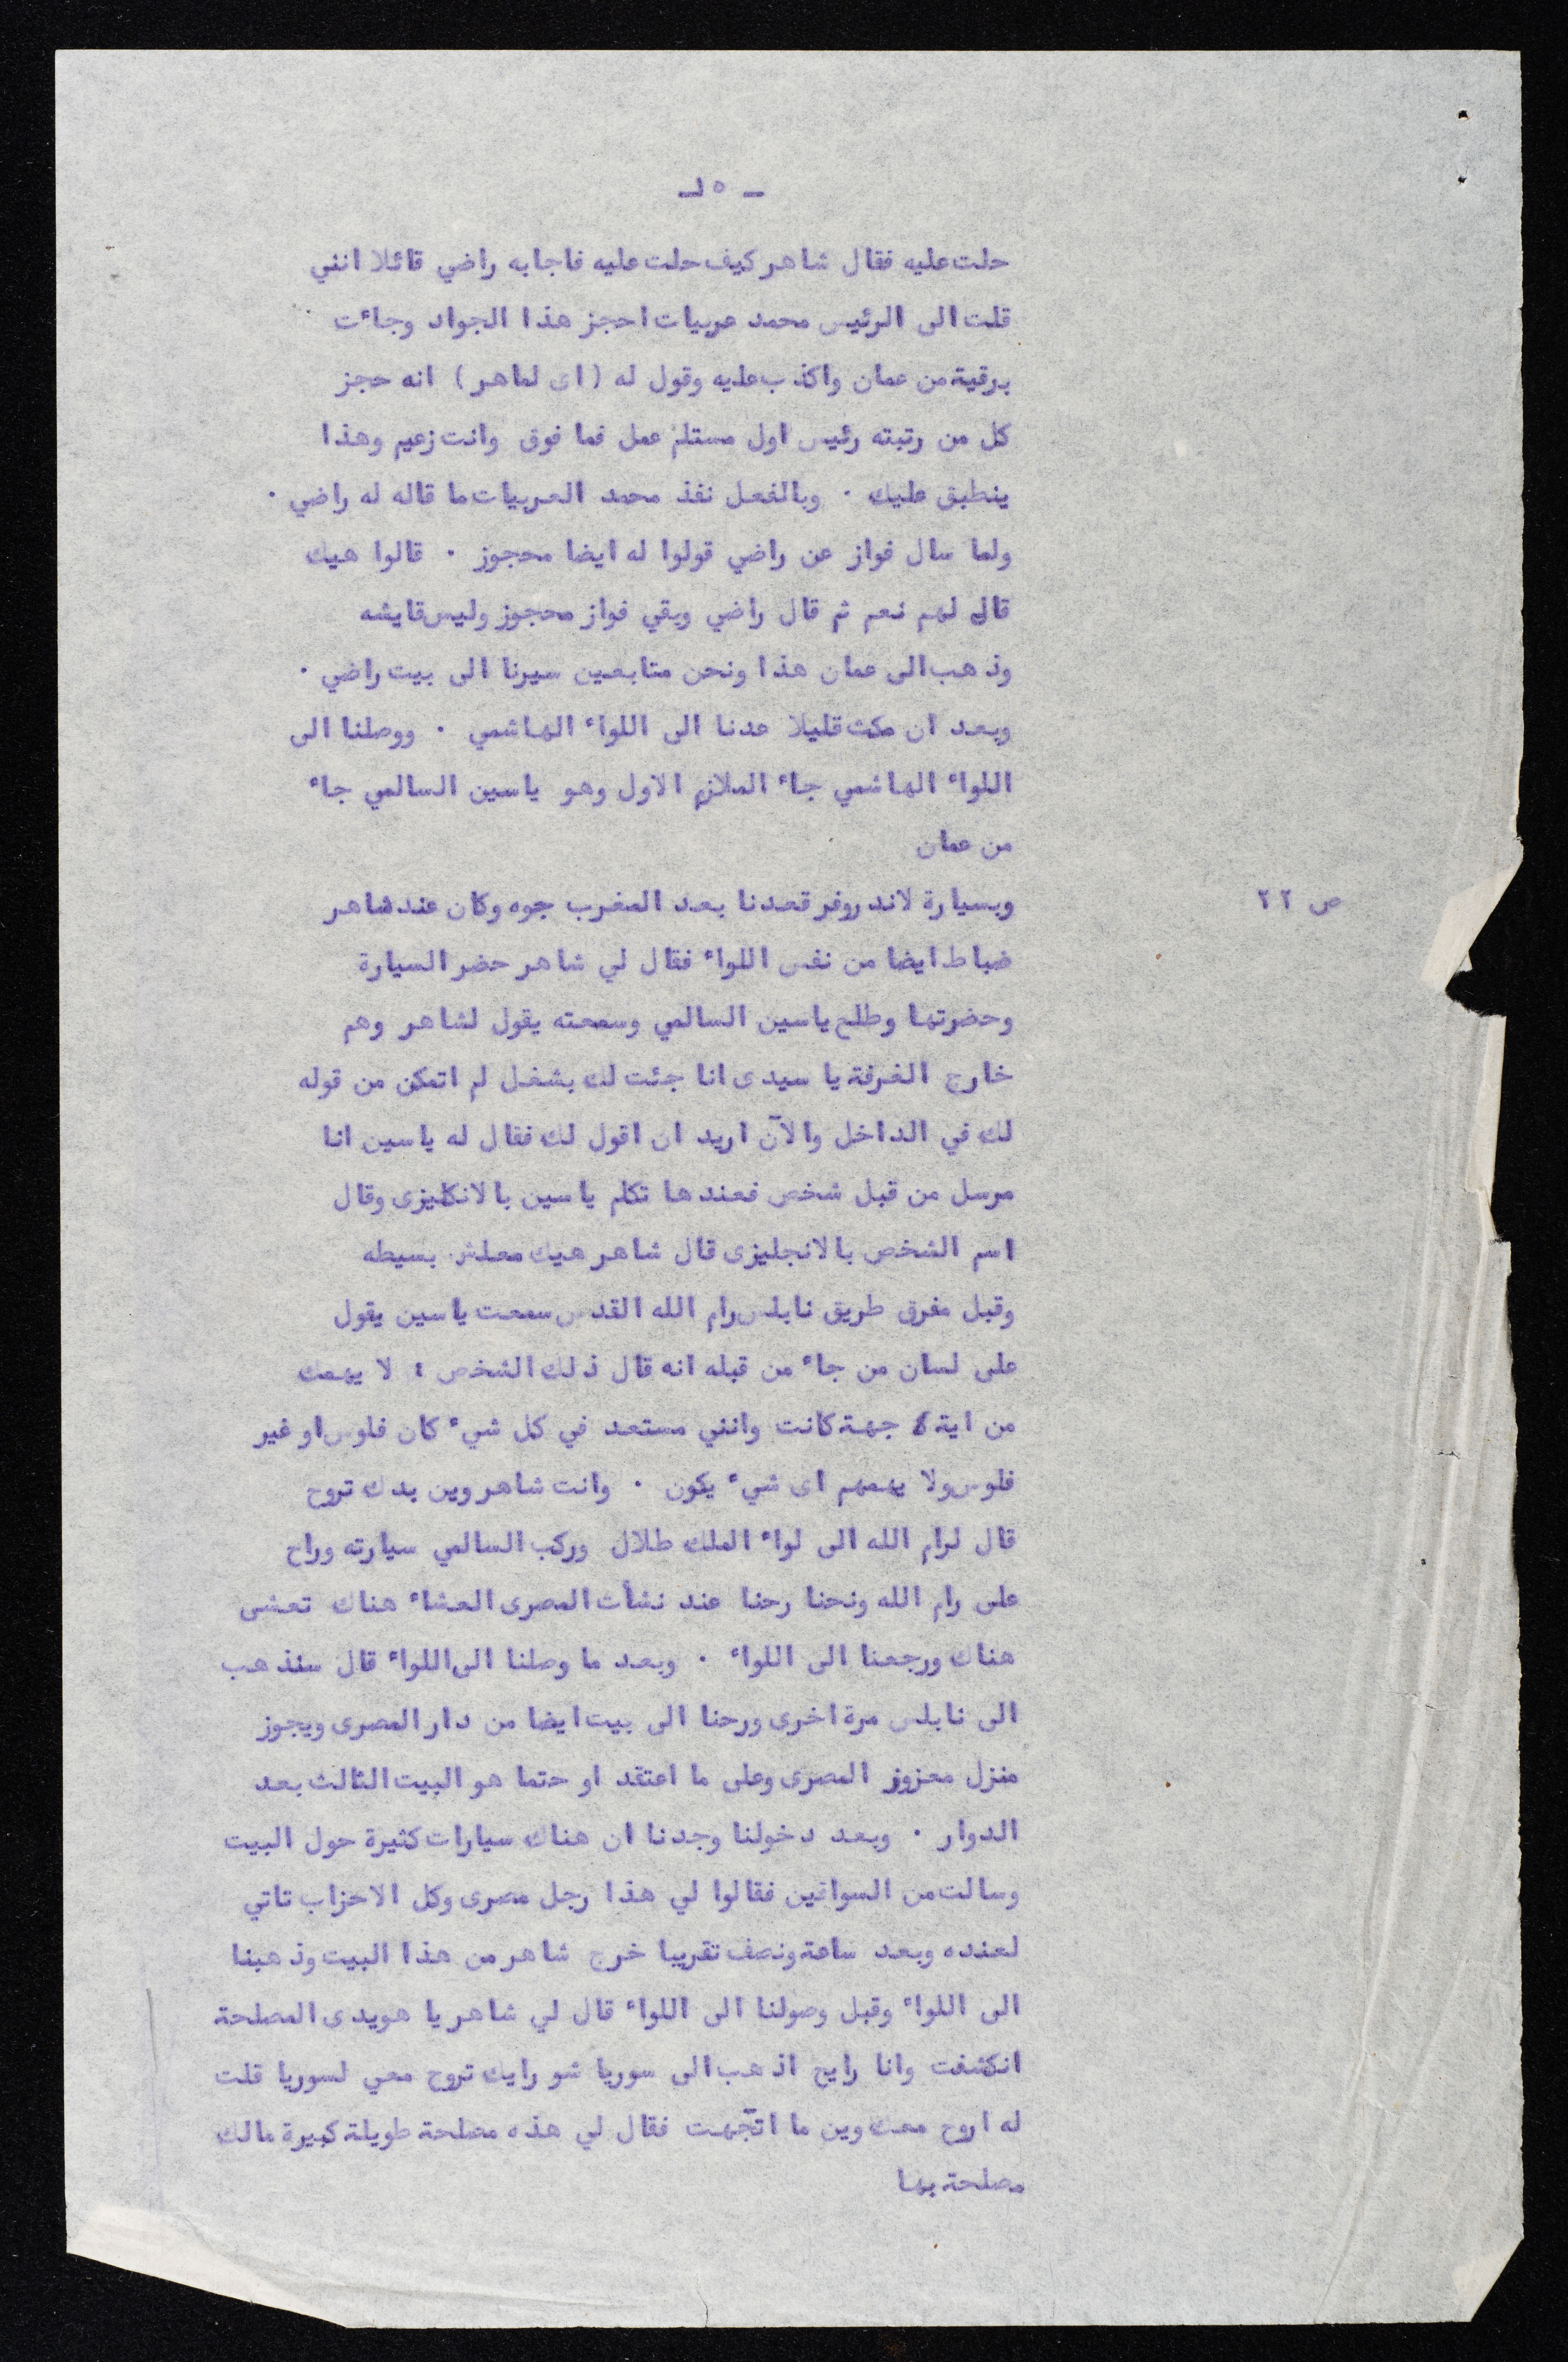 ـ ١٥ـ
حلت عليه فقال شاهر كيف حلت عليه فاجابه راضي قائلا انني
قلت الى الرئيس محمد عربيات احجز هذا الجواد وجاءت
برقية من عمان واكذب عليه وقول له ( اى لماهر ) انه حجز
كل من رتبته رئيس اول مستلم عمل فما فوق وانت زعيم وهذا
ينطبق عليك ٠ وبالفعل نفذ محمد العربيات ما قاله له راضي ٠
ولما سال فواز عن راضي قولوا له ايضا محجوز ٠ قالوا هيك
قال لهم نعم ثم قال راضي وبقي فواز محجوز وليس قايشه
وذهب الى عمان هذا ونحن متابعين سيرنا الى بيت راضي ٠
وبعد ان مكث قليلا عدنا الى اللواء الهاشمي ٠ ووصلنا الى
اللواء الهاشمي جاء الملازم الاول وهو ياسين السالمي جاء
من عمان
ص ٢٢ وبسيارة لاند روفر قعدنا بعد المغرب جوه وكان عند شاهر
ضباط ايضا من نفس اللواء فقال لي شاهر حضر السيارة
وحضرتها وطلع ياسين السالمي وسمعته يقول لشاهر وهم
خارج الغرفة يا سيدى انا جئت لك بشغل لم اتمكن من قوله
لك في الداخل والآن اريد ان اقول لك فقال له ياسين انا
مرسل من قبل شخص فعندها تكلم ياسين بالانكليزى وقال
اسم الشخص بالانجليزى قال شاهر هيك معلش بسيطه
وقبل مفرق طريق نابلس رام الله القدس سمعت ياسين يقول
على لسان من جاء من قبله انه قال ذلك الشخص : لا يهمك
من اية جهة كانت وانني مستعد في كل شيء كان فلوس او غير
فلوس ولا يهمهم اى شيء يكون ٠ وانت شاهر وين بدك تروح
قال لرام الله الى لواء الملك طلال وركب السالمي سيارته وراح
على رام الله ونحنا رحنا عند نشأت المصرى العشاء هناك تعشى
هناك ورجعنا الى اللواء ٠ وبعد ما وصلنا الى اللواء قال سنذهب
الى نابلس مرة اخرى ورحنا الى بيت ايضا من دار المصرى ويجوز
منزل معزوز المصرى وعلى ما اعتقد او حتما هو البيت الثالث بعد
الدوار ٠ وبعد دخولنا وجدنا ان هناك سيارات كثيرة حول البيت
وسالت من السواقين فقالوا لي هذا رجل مصرى وكل الاحزاب تاتي
لعنده وبعد ساعة ونصف تقريبا خرج شاهر من هذا البيت وذهبنا
الى اللواء وقبل وصولنا الى اللواء قال لي شاهر يا هويدى المصلحة
انكشفت وانا رايح اذهب الى سوريا شو رايك تروح معي لسوريا قلت
له اروح معك وين ما اتجهت فقال لي هذه مصلحة طويلة كبيرة مالك
مصلحة بها